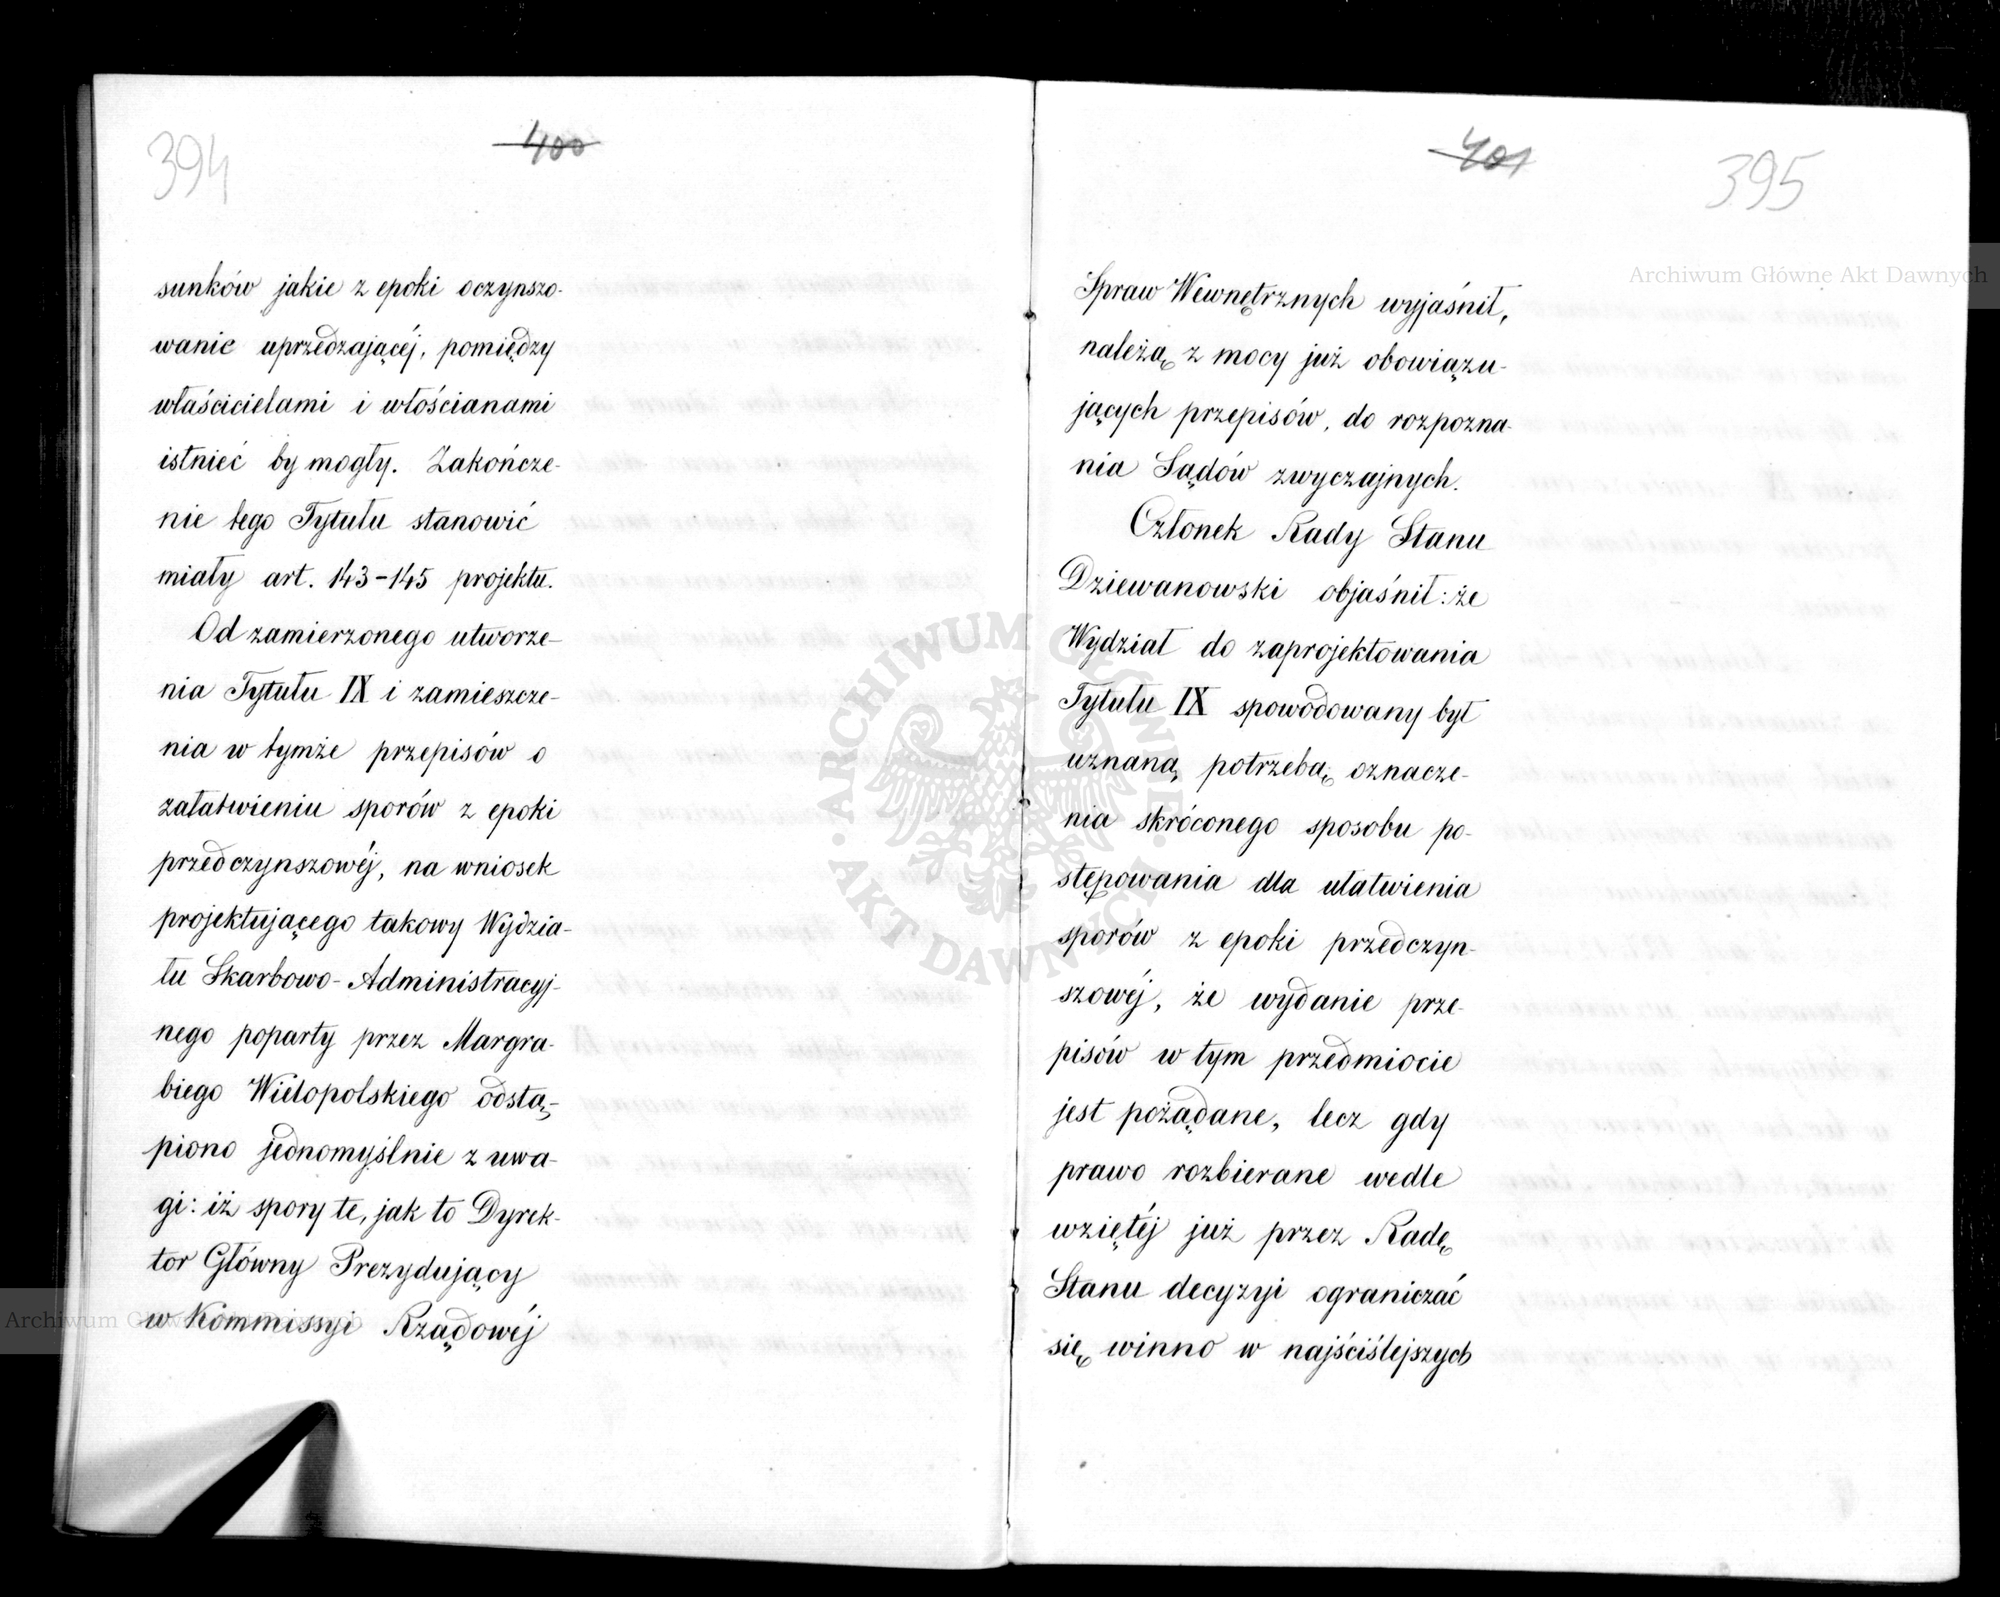 394
400
sunków jakie z epoki oczynszo-
wanie uprzedzającéj, pomiędzy
właścicielami i włościanami
istnieć by mogły. Zakończe-
nie tego Tytułu stanowić
miały art. 143-145 projektu.
Od zamierzonego utworze-
nia Tytułu IX i zamieszcze-
nia w tymże przepisów o
załatwieniu sporów z epoki
przedczynszowéj, na wniosek
projektującego takowy Wydzia-
łu Skarbowo-Administracyj-
nego poparty przez Margra-
biego Wielopolskiego odstą-
piono jednomyślnie z uwa-
gi: iż spory te, jak to Dyrek-
tor Główny Prezydujący
w Kommissyi Rządowéj
401
395
Spraw Wewnętrznych wyjaśnił,
należą z mocy już obowiązu-
jących przepisów, do rozpozna-
nia Sądów zwyczajnych.
Członek Rady Stanu
Dziewanowski objaśnił: że
Wydział do zaprojektowania
Tytułu IX spowodowany był
uznaną potrzebą oznacze-
nia skróconego sposobu po-
stępowania dla ułatwienia
sporów z epoki przedczyn-
szowéj, że wydanie prze-
pisów w tym przedmiocie
jest pożądane, lecz gdy
prawo rozbierane wedle
wziętéj już przez Radę
Stanu decyzyi ograniczać
się winno w najściślejszych
Archiwum Główne Akt Dawnych
Archiwum Główne Akt Dawnych
ARCHIWUM GŁÓWNE · AKT DAWNYCH ·